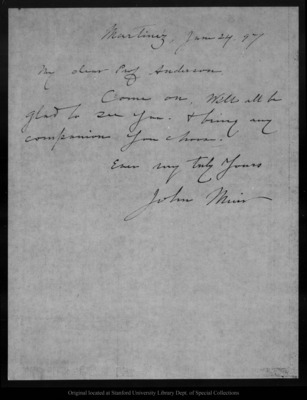 Martinez, Jan 24, 97
My dear Prof Anderson
Come on. We'll all be
glad to see you. & bring any
companion you choose.
Ever my truly yours
John Muir
Original located at Stanford University Library Dept. of Special Collections